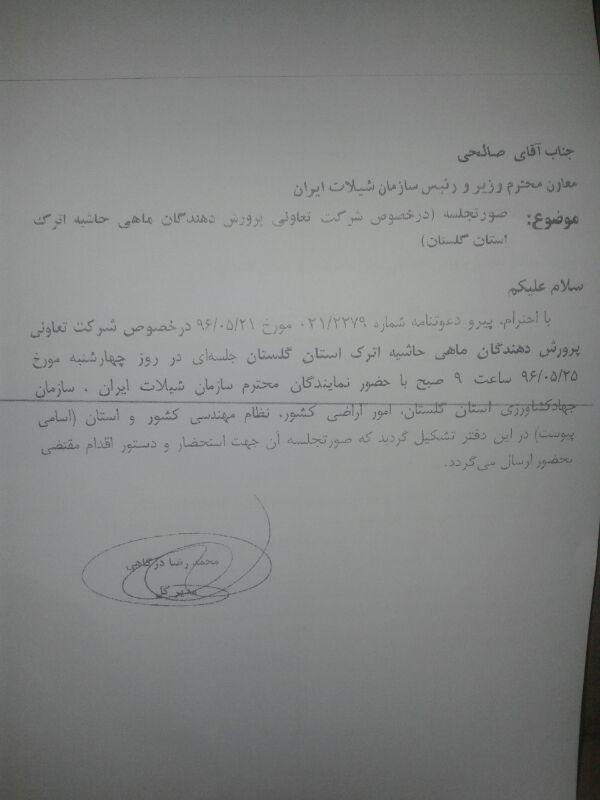 جناب آقای صالحی
معاون محترم وزیر و رئیس سازمان شیلات ایران
موضوع: صورتجلسه (درخصوص شرکت تعاونی پرورش دهندگان ماهی حاشیه اترک
استان گلستان)
سلام علیکم
با احترام، پیرو دعوتنامه شماره ۰۲۱/۲۲۷۹ مورخ ۹۶/۰۵/۲۱ درخصوص شرکت تعاونی
پرورش دهندگان ماهی حاشیه اترک استان گلستان جلسه‌ای در روز چهارشنبه مورخ
۹۶/۰۵/۲۵ ساعت ۹ صبح با حضور نمایندگان محترم سازمان شیلات ایران ، سازمان
جهادکشاورزی استان گلستان، امور اراضی کشور، نظام مهندسی کشور و استان (اسامی
پیوست) در این دفتر تشکیل گردید که صورتجلسه آن جهت استحضار و دستور اقدام مقتضی
بحضور ارسال می‌گردد.
محمد رضا درگاهی
مدیر کل